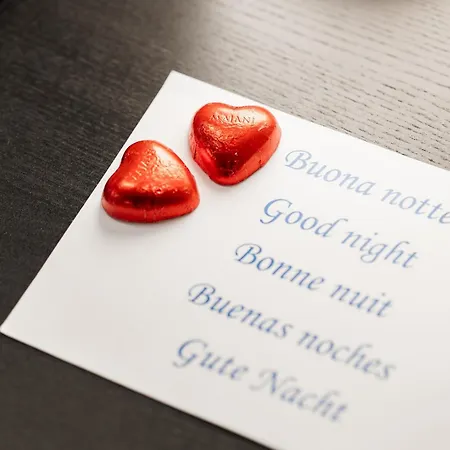 MAJANI
Buona notte
Good night
Bonne nuit
Buenas noches
Gute Nacht